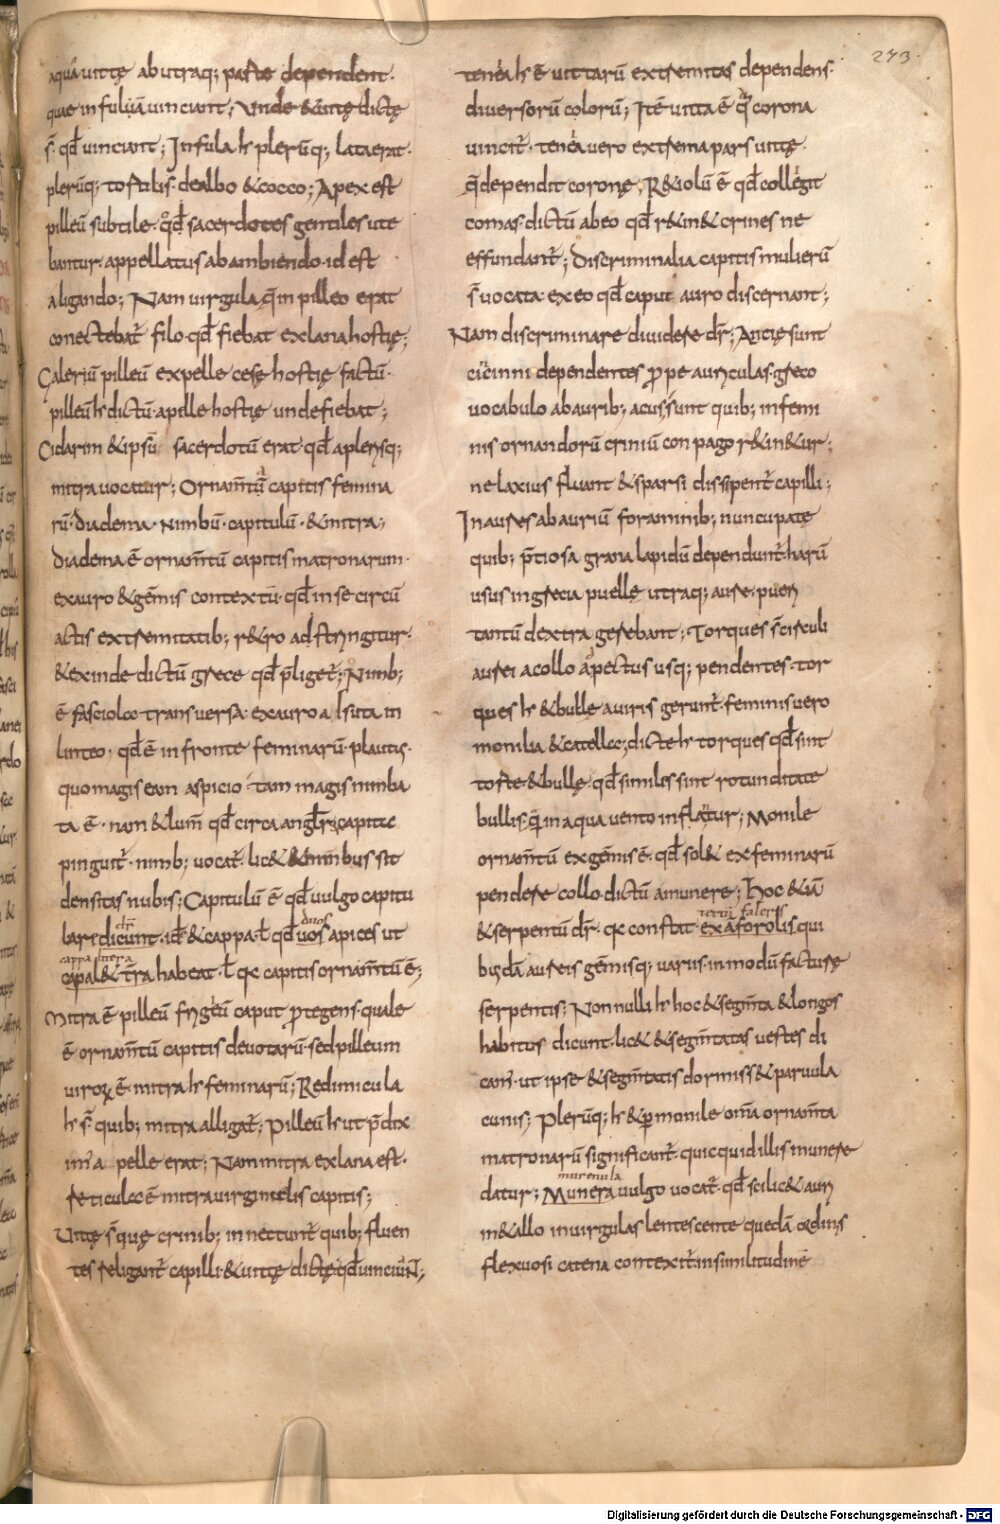 273.
aqua uittę ab utraq; parte dependent.
quae infulā uinciunt; Unde & uittę dictę
s̄ qđ uinciunt; Infula h̄ plerūq; lata erat.
plerūq; tortilis dealbo & cocco; Apex est
pilleū subtile. qđ sacerdotes gentiles ute
bantur. appellatus ab ambiendo. id est
aligando; Nam uirgula quę in pilleo erat
conectebat̄ filo. qđ fiebat ex lana hostię;
Galeriū pilleū ex pelle cesę hostię factū.
pilleū h̄ dictū a pelle hostię unde fiebat;
Cidarim & ipsū sacerdotū erat. qđ a plerisq;
mitra uocatur; Ornam̄tū capitis femina
rū. diadema. Nimbū. capitulū. & mitra;
Diadema ē ornam̄tū capitis matronarum.
ex auro & gēmis contextū. qđ in se circū
actis extremitatib; r&ro adstringitur.
& exinde dictū grece qđ p̄liget̄; Nimb;
ē fasciola transuersa ex auro adsuta in
linteo. qđ ē in fronte feminarū. plautis.
quo magis eam aspicio tam magis nimba
ta ē. nam & lum̄ qđ circa angelor̄ capita
pingunt̄. nimb; uocat̄. lic& & nimbus sit
densitas nubis; Capitulū ē qđ uulgo capitu
duos
lare dicunt. id̄ & cappa ł qđ uos apices ut
cappa littera
capal& tr̄a habeat. ł qa capitis ornam̄tū ē;
Mitra ē pilleū frygeū caput p̄tegens. quale
ē ornam̄tū capitis deuotarū. sed pilleum
uiror̄ ē. mitra h̄ feminarū; Redimicula
h̄ s̄ quib; mitra alligat̄; Pilleū h̄ ut p̄dix
im̄ a pelle erat; Nam mitra ex lana est.
Reticulū ē mitra uirginalis capitis;
Uittę s̄ quę crinib; innectunt̄ quib; fluen
tes religant̄ capilli & uittę dictę qđ uinciūt;
tenea h̄ ē uittarū extremitas dependens.
diuersorū colorū; Itē uitta ē qua corona
uincit̄. tenea uero extrema pars uittę.
q̄ dependit coronę; R&iolū ē qđ collegit
comas. dictū ab eo qđ r&in& crines ne
effundant̄; Discriminalia capitis mulierū
s̄ uocata. ex eo qđ caput auro discernant;
Nam discriminare diuidere dr̄; Ancię sunt
cincinni dependentes p̄pe auriculas. greco
uocabulo ab aurib; acus sunt quib; in femi
nis ornandorū criniū conpago r&in&ur;
ne laxius fluant & sparsi dissipent̄ capilli;
Inaures ab auriū foraminib; nuncupatę
quib; p̄tiosa grana lapidū dependunt̄. harū
usus in grecia puellę utraq; aure. pueri
tantū dextra gerebant; Torques s̄ circuli
aurei a collo ad pectus usq; pendentes. tor
ques h̄ & bulle a uiris gerunt̄. feminis uero
monilia & catellę; dictę h̄ torques qđ sint
tortę & bullę. qđ similes sint rotunditate
bullis. quę in aqua uento inflatur; Monile
ornam̄tū ex gēmis ē. qđ sol& ex feminarū
pendere collo. dictū a munere; hoc & iā
& serpentū dr̄. qa constat ex aforolis qui
busdā aureis gēmisq; uarus. in modū facturę
serpentis; Nonnulli h̄ hoc & segm̄ta & longos
habitus dicunt. lic& & segm̄tatas uestes di
cam̄. ut ipse & segm̄tatis dormiss& paruula
cunis; Plerūq; h̄ & p̄ monile om̄a ornam̄ta
matronarū significant̄. quicquid illis munere
murenula
datur; Munera uulgo uocat̄. qđ scilic& auri
m&allo in uirgulas lentescente quedā ordinis
flexuosi catena contexit̄. in similitudinē
Digitalisierung gefördert durch die Deutsche Forschungsgemeinschaft - DFG